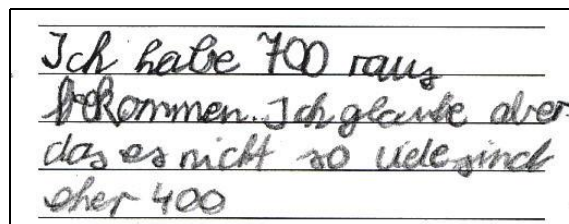 Ich habe 700 raus
bekommen. Ich glaube aber
das es nicht so viele sind
eher 400